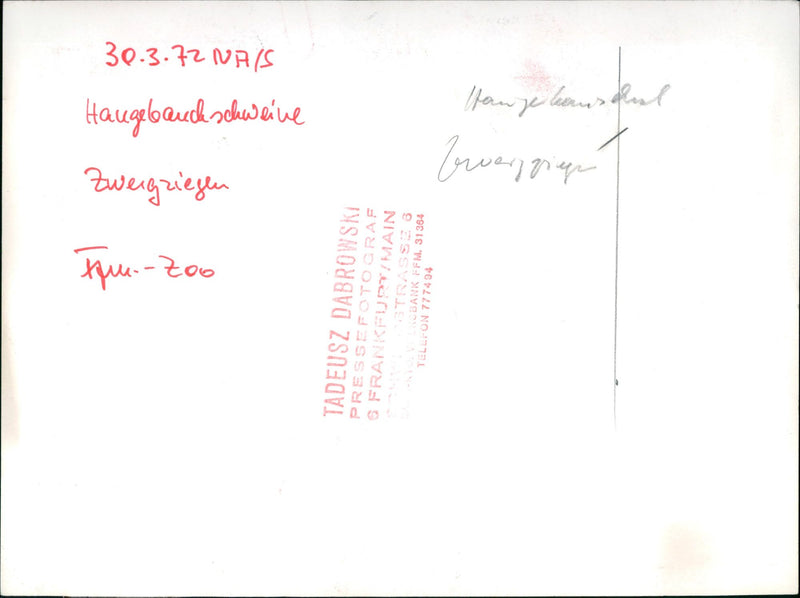 30.3.72 NA/S
Hängebauchschweine
Zwergziegen
Ffm.-Zoo
Hängebauchsch
Zwergziegen
TADEUSZ DABROWSKI
PRESSEFOTOGRAF
6 FRANKFURT/MAIN
STRASSE 6
BANK FFM. 31364
TELEFON 777494